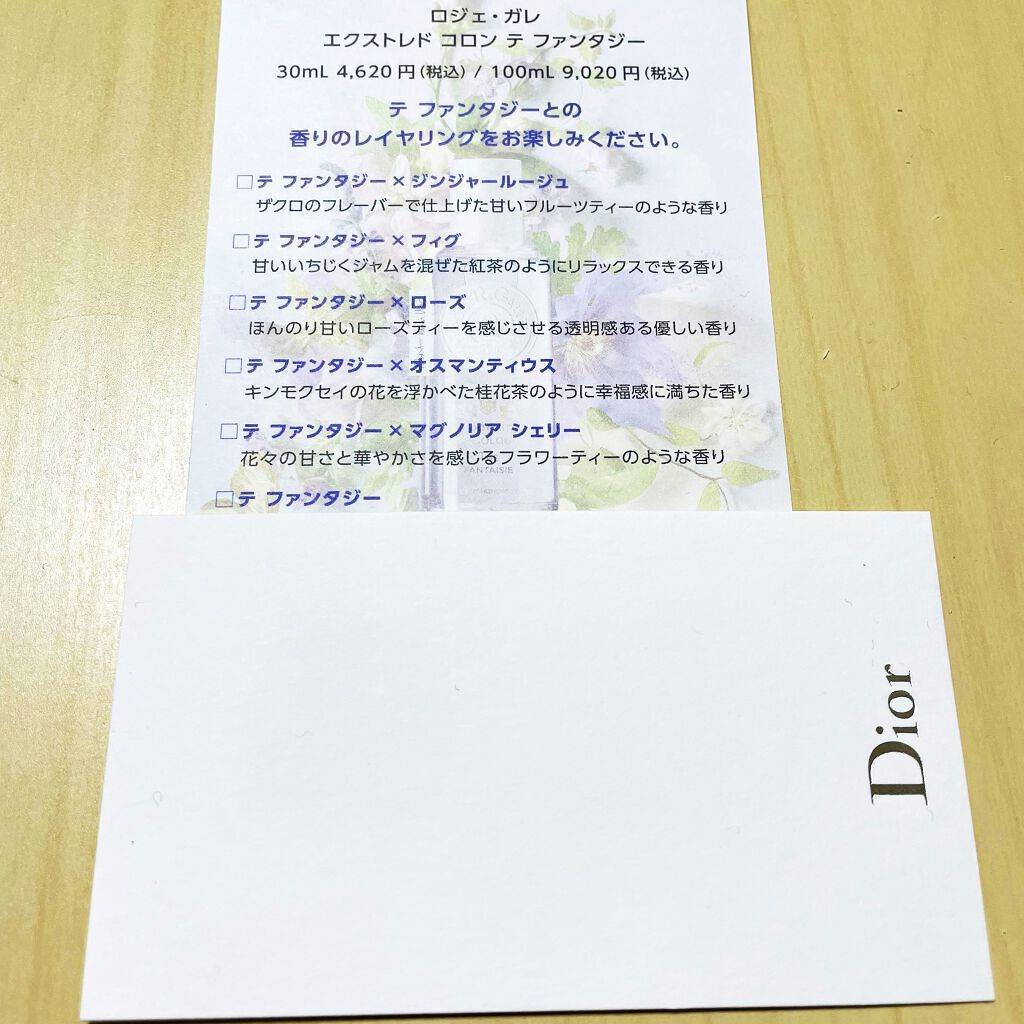 ロジェ・ガレ
エクストレド コロン テ ファンタジー
30mL 4,620円(税込) / 100mL 9,020円(税込)
テ ファンタジーとの
香りのレイヤリングをお楽しみください。
□テ ファンタジー×ジンジャールージュ
ザクロのフレーバーで仕上げた甘いフルーツティーのような香り
□テ ファンタジー×フィグ
甘いいちじくジャムを混ぜた紅茶のようにリラックスできる香り
□テ ファンタジー×ローズ
ほんのり甘いローズティーを感じさせる透明感ある優しい香り
□テ ファンタジー×オスマンティウス
キンモクセイの花を浮かべた桂花茶のように幸福感に満ちた香り
□テ ファンタジー×マグノリア シェリー
花々の甘さと華やかさを感じるフラワーティーのような香り
FANTAISIE
□テ ファンタジー
Dior